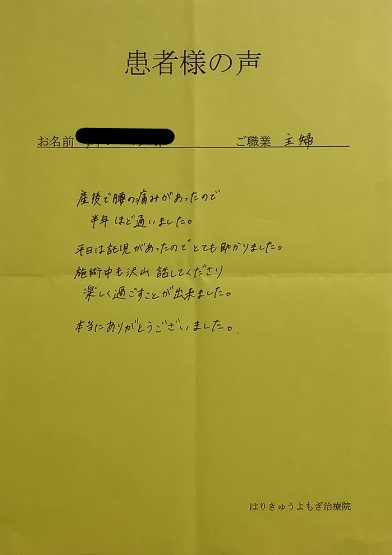 患者様の声
お名前 ご職業 主婦
産後で腰の痛みがあったので
半年ほど通いました。
平日は託児があったのでとても助かりました。
施術中も沢山話してくださり
楽しく過ごすことが出来ました。
本当にありがとうございました。
はりきゅうよもぎ治療院